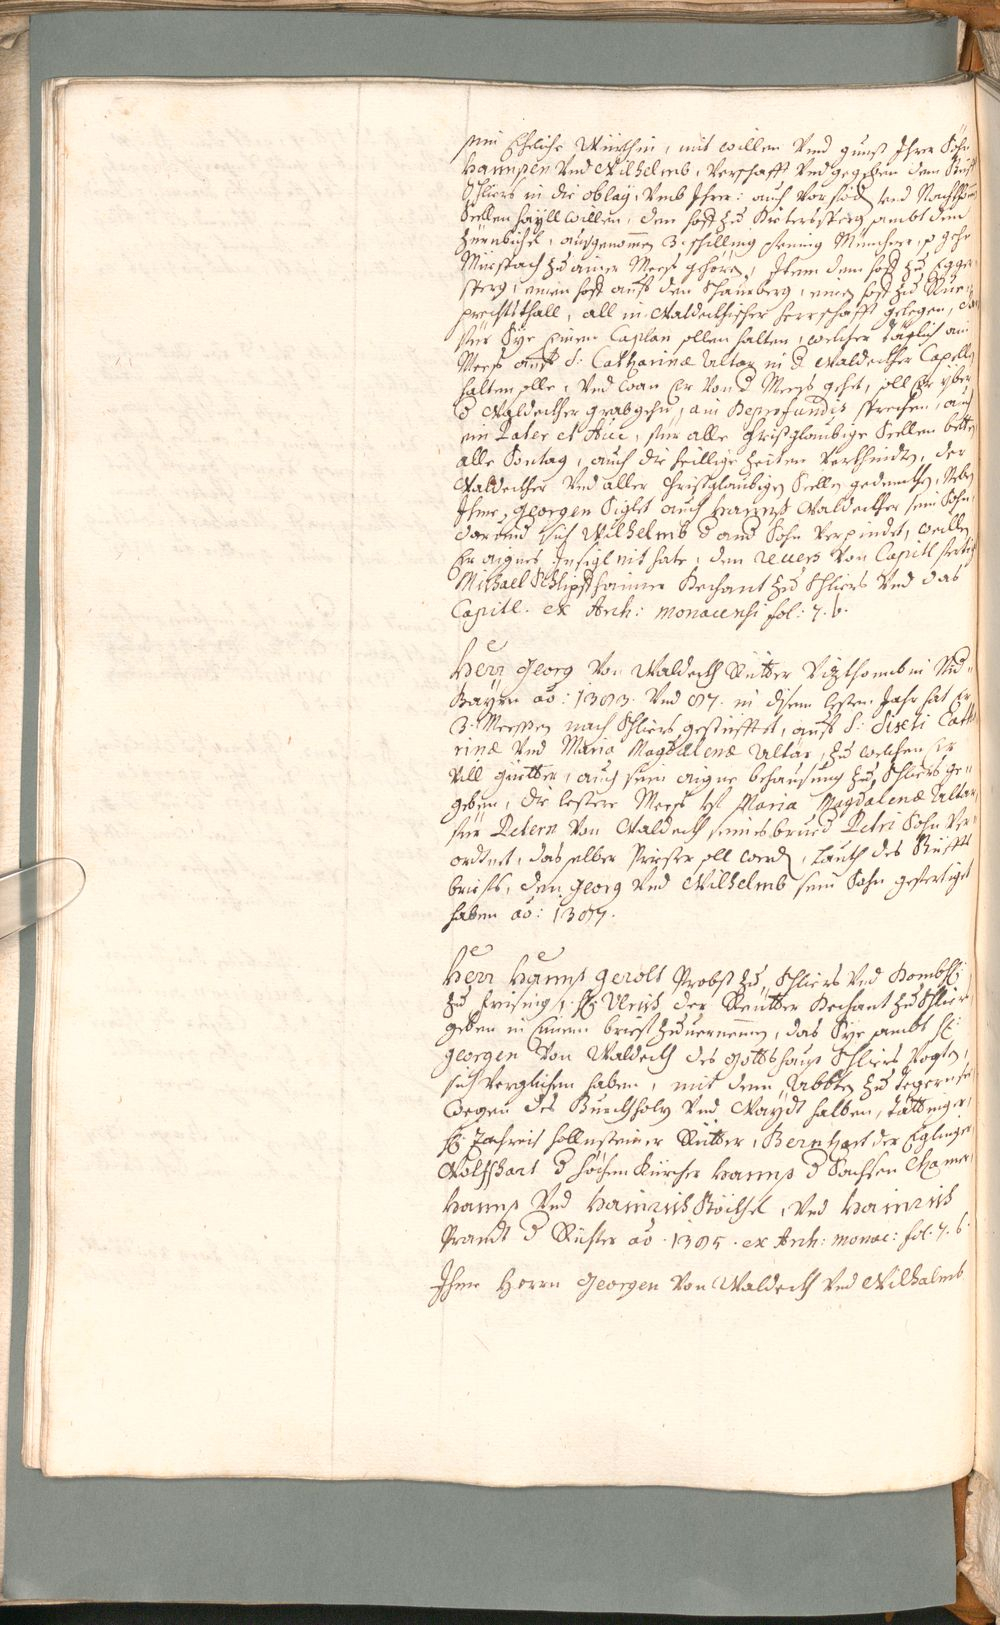 sein Eheliche Würthin, mit willen Vnd gunst Ihrer Söhn
Hannsen Vnd Wilhelmb, Verschafft Vnd gegeben dem Stüfft
Schliers in die oblay, Vmb Ihrer: auch Vorfodern Vnd Nachkhomen
Seellen hayll willen, den hoff zu sambt dem
ausgenomen 3. schilling pfening Münchner, so gehn
Miespach zu ainer Mess gehörn, Item dem hoff zu Egger-
sperg, einen hoff auf den Schaurberg, einen hoff zu
prechtsthall, all in Waldeckhischer herrschafft gelegen, dar
für Sye Einen Caplan sollen halten, welcher täglich ain
Mess auf S: Catharinæ Altar in d Waldeckher Capellen
halten solle, Vnd wan Er Von d Mess geht, soll Er yber
d Waldeckher grab gehn, ain Deprofundis sprechen, auch
ein Pater et Aue, für alle Christglaubige Seellen betten
alle Sontag, auch die heillige Zeiten Verkhindten, der
Waldeckher Vnd aller Christglaubigen Seellen gedenckhen, Neben
Ihme Georgen Siglet auch Hanns Waldeckher sein Sohn
darund sich Wilhelmb d and Sohn Verpindet, weillen
Er aignes Insigl nit hate, den reuers Von Capitl fertigt
Michael Schlipfhaimer Dechant zu Schliers Vnd das
Capitl. ex Arch: monacensi fol: 7. b.
Herr Georg Von Waldeckh Ritter Vizthomb in Nid-
Bayrn aõ: 1383. Vnd 87. in disem lesten Jahr hat Er
3. Messen nach Schliers gestüfftet, auf S: Sixti Catha
rinæ Vnd Maria Magdalenæ Altar, zu welchen Er
Vill güetter, auch sein aigne behausung zu Schliers ge-
geben, die lestere Mess ist Maria Magdalenæ Altar,
für Petern Von Waldeckh seines brued Petri Sohn Ver-
ordnet, das selber Priester soll werden, lauth des Stüfft
briefs, den Georg Vnd Wilhelmb sein Sohn gefertiget
haben aõ: 1387.
Herr Hanns Gerolt Probst zu Schliers Vnd Dombh:
zu Freising, H: Ulrich der Reutter Dechant zu Schliers
geben in Einem brieff zuuernemen, das Sye sambt H:
Georgen Von Waldeckh des Gottshaus Schliers Vogten,
sich Verglichen haben, mit dem Abbten zu Tegernsee
wegen des Vnd Wayde halben,
H: Zachreis hollnsteiner Ritter, Bernhart der Eglinger
Wolfhart d Kürcher Hanns d Sachsen Chamer,
Hanns Vnd Hainrich Vnd Hainrich
Prandt d Richter aõ. 1385. ex Arch: monac: fol. 7. b.
Ihme Herrn Georgen Von Waldeckh Vnd Wilhalmb